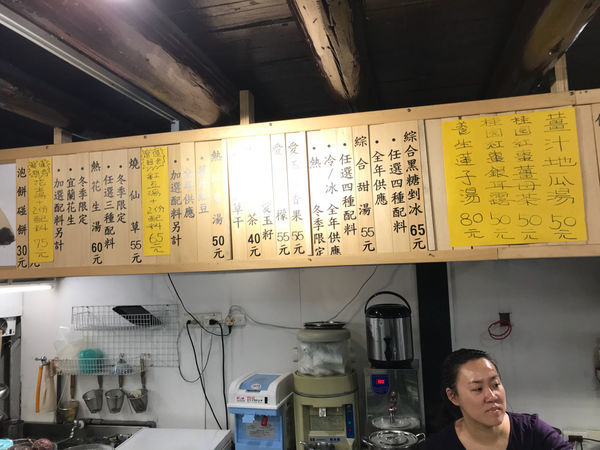 薑汁地瓜湯 50元
桂圓薑母茶 50元
桂圓紅棗銀耳 50元
養生蓮子湯 80元
綜合黑糖剉冰 65元
．任選四種配料
．全年供應
綜合甜湯 55元
．任選四種配料
．冷/冰 全年供應
．熱 冬季限定
55元
55元
愛玉檸
愛玉籽
茶 40元
湯 50元
．全年供應
．加選配料另計
紅豆湯+2份配料 65元
燒仙草 55元
．任選三種配料
．冬季限定
熱花生湯 60元
．冬季限定
．宜蘭花生
．加選配料另計
+2份配料 75元
泡餅 碰餅 30元